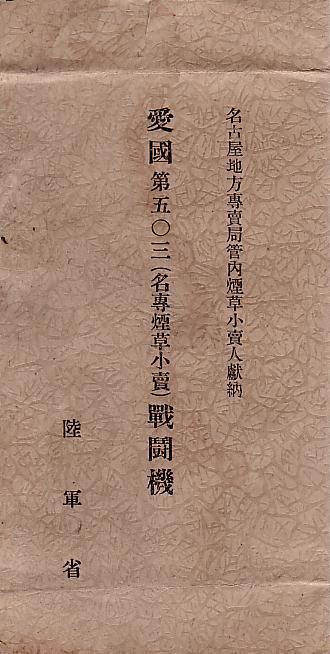 名古屋地方專賣局管內煙草小賣人獻納
愛國第五〇三（名專煙草小賣）戰鬪機
陸軍省